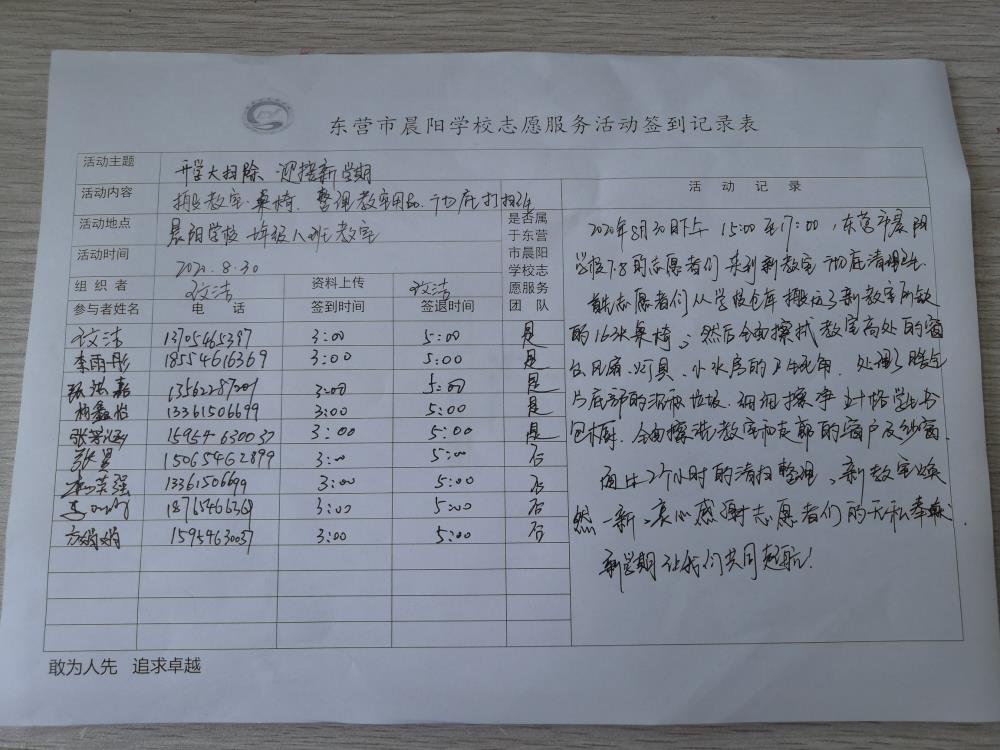 东营市晨阳学校志愿服务活动签到记录表
活动主题 开学大扫除 迎接新学期
活动内容 搬运教室桌椅、整理教室用品、彻底打扫卫生
活动地点 晨阳学校 年级八班教室
活动时间 2020.8.30
组织者 资料上传
是否属于东营市晨阳学校志愿服务团队
参与者姓名 电话 签到时间 签退时间
13705465387 3:00 5:00 是
李雨彤 18554616369 3:00 5:00 是
张洪嘉 3:00 5:00 是
杨鑫怡 13361506699 3:00 5:00 是
15954630037 3:00 5:00 是
15065462899 3:00 5:00 否
杨荣强 13361506699 3:00 5:00 否
3:00 5:00 否
方娟娟 15954630037 3:00 5:00 否
活动记录
2020年8月30日下午15:00至17:00,东营市晨阳
学校7.8的志愿者们来到新教室彻底清理卫生.
首先志愿者们从学校仓库搬运了新教室所缺
的16张桌椅;然后全面擦拭教室高处的窗
台风扇、灯具、小水房的卫生死角.处理了暖气
片底部的沉积垃圾.细细擦净五十格学生书
包柜.全面擦洗教室和走廊的窗户及纱窗.
通过2个小时的清扫整理,新教室焕
然一新.衷心感谢志愿者们的无私奉献.
新学期让我们共同起航!
敢为人先 追求卓越